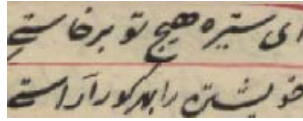 ای ستیره هیچ تو برخاستی
خویشتن را بهر کور آراستی